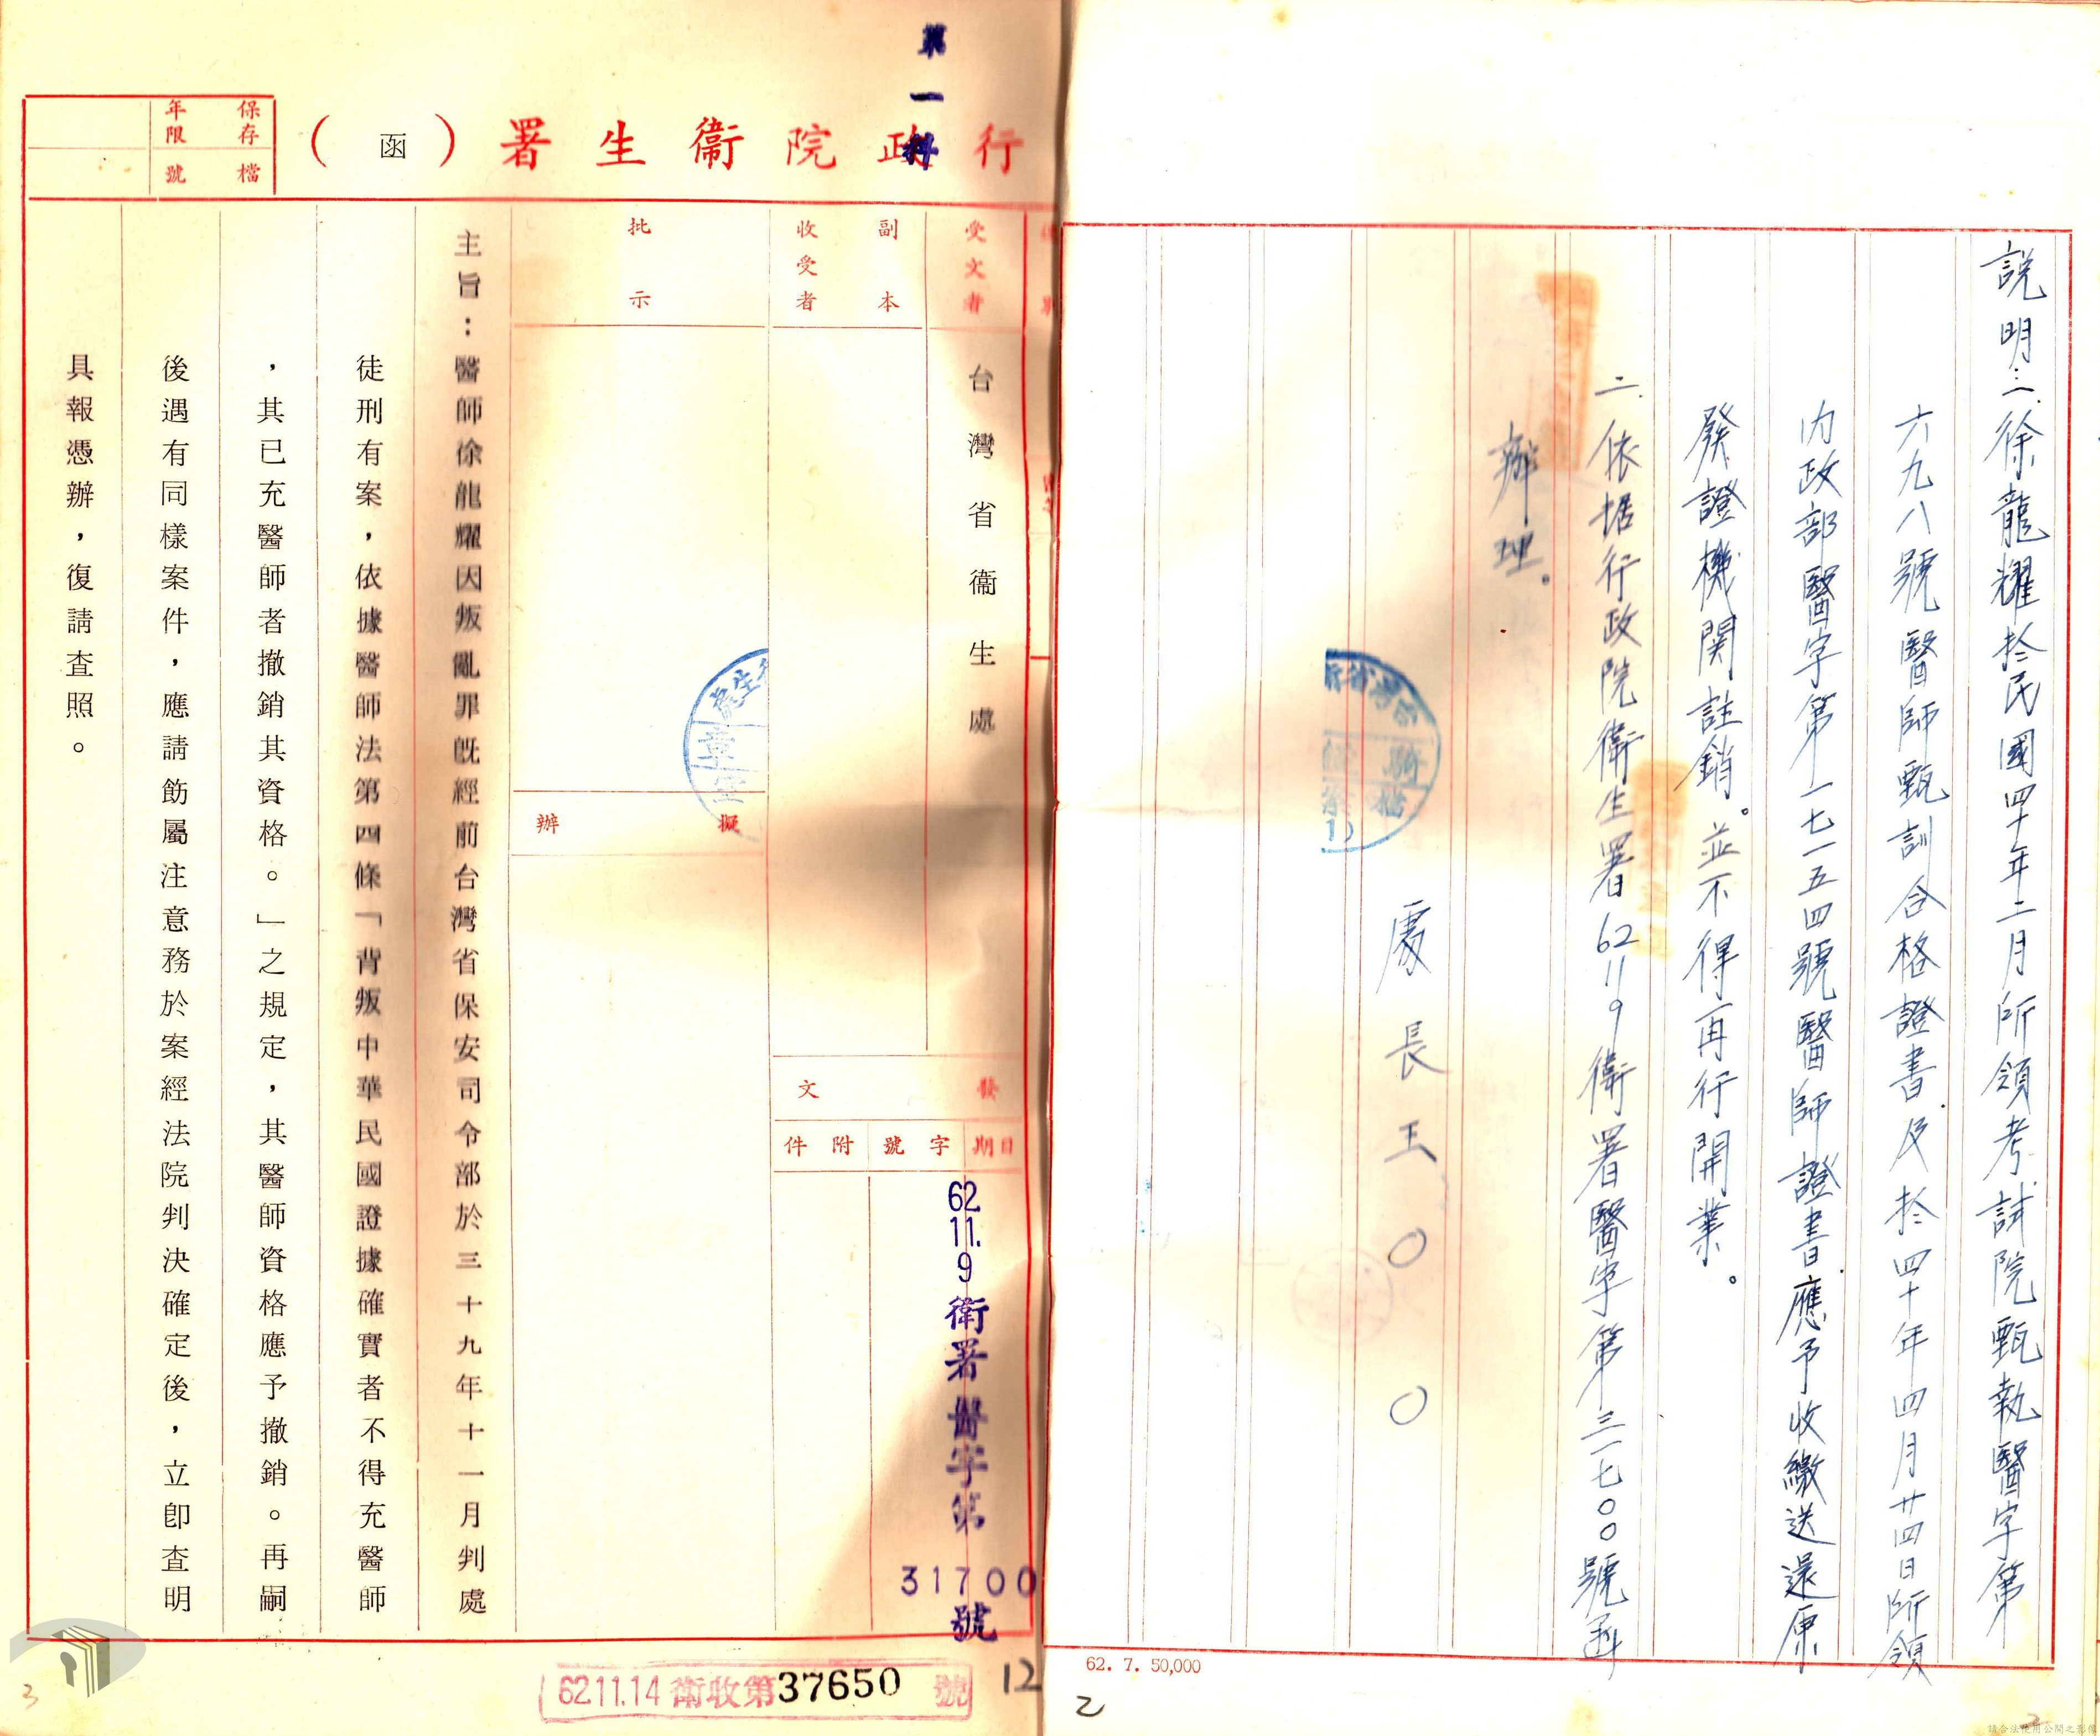 說明：一、徐龍耀於民國四十年二月所領考試院甄執醫字第
六九八號醫師甄訓合格證書及於四十年四月廿四日所領
內政部醫字第一七一五四號醫師證書應予收繳送還原
發證機關註銷。並不得再行開業。
二、依据行政院衛生署62 11 9衛署醫字第三一七〇〇號函
辦理。
處長王〇〇
62. 7. 50,000
2
第一科
行政院衞生署（函）
保存年限
檔號
受文者
台灣省衞生處
副本收受者
批示
擬辦
發文
日期
字號
附件
62. 11. 9 衛署醫字第 31700 號
主旨：醫師徐龍耀因叛亂罪旣經前台灣省保安司令部於三十九年十一月判處
徒刑有案，依據醫師法第四條「背叛中華民國證據確實者不得充醫師
，其已充醫師者撤銷其資格。」之規定，其醫師資格應予撤銷。再嗣
後遇有同樣案件，應請飭屬注意務於案經法院判決確定後，立卽查明
具報憑辦，復請查照。
62.11.14 衛收第37650號
12
3